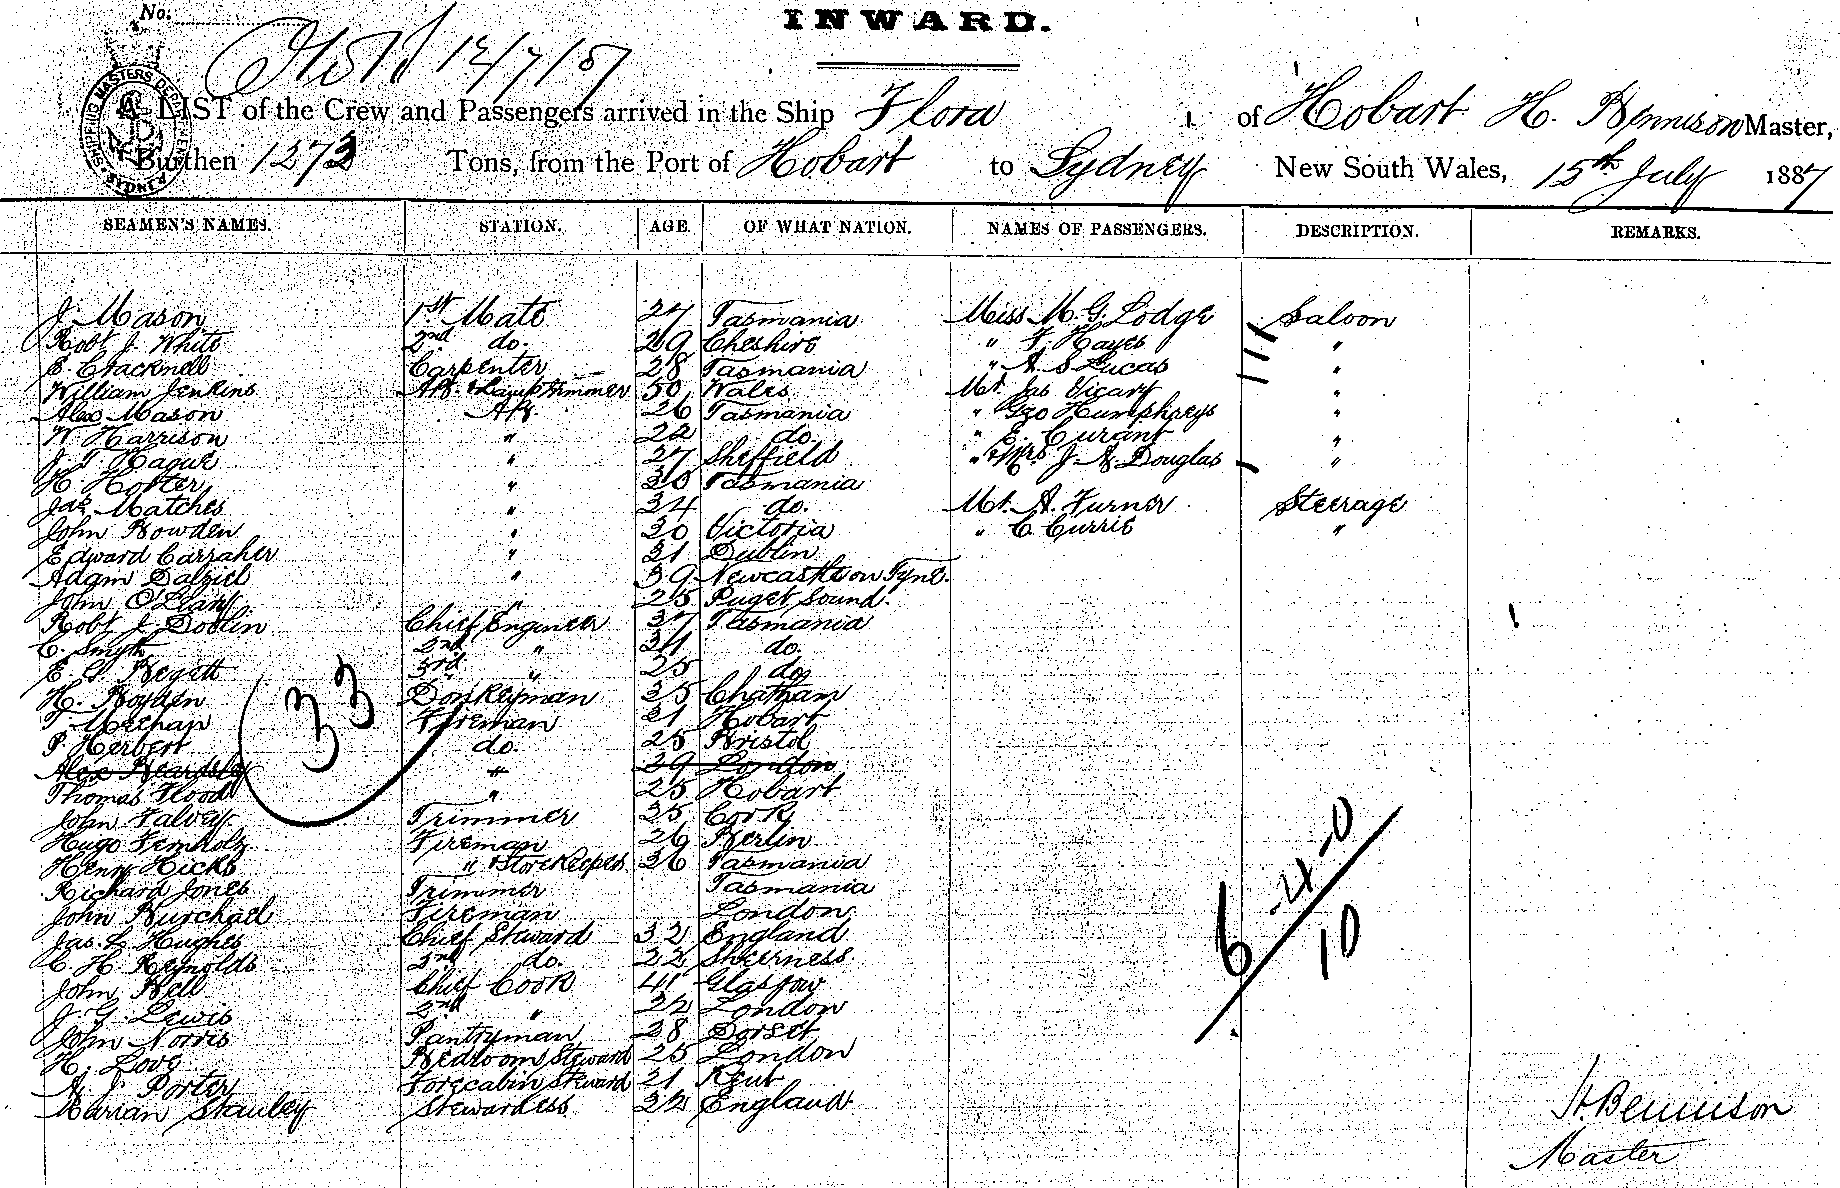 No.
INWARD.
SHIPPING MASTERS DEPARTMENT SYDNEY
A LIST of the Crew and Passengers arrived in the Ship Flora of Hobart H. Bennison Master,
Burthen 1273 Tons, from the Port of Hobart to Sydney New South Wales, 15th July 1887
SEAMEN'S NAMES. STATION. AGE. OF WHAT NATION. NAMES OF PASSENGERS. DESCRIPTION. REMARKS.
J. Mason 1st Mate 27 Tasmania Miss M. G. Lodge Saloon
Robt J. White 2nd do. 29 Cheshire " F. Hayes "
E. Cracknell Carpenter 28 Tasmania " A. S. Lucas "
William Jenkins AB. & Lamptrimmer 50 Wales Mr. Jas Vicary "
Alex Mason AB. 26 Tasmania " Geo Humphreys "
W. Harrison " 22 do. " E. Curant "
J. T. Hague " 27 Sheffield " & Mrs. J. A. Douglas "
H. Hopter " 30 Tasmania
Jas. Matches " 34 do. Mr. A. Turner Steerage
John Bowden " 30 Victoria " C. Currie "
Edward Carraher " 31 Dublin
Adam Dalziel " 39 Newcastle on Tyne.
John O'Leary " 25 Puget Sound.
Robt J. Doblin Chief Engineer 37 Tasmania
C. Smyth 2nd " 31 do.
E. S. 3rd " 25 do
H. Boyden Donkeyman 35 Chatham
T. Meehan Fireman 31 Hobart
P. Herbert do. 25 Bristol
Alex Beardsley " 29 London
Thomas Flood " 25 Hobart
John Falvey Trimmer 35 Cork
Hugo Fernholz Fireman 26 Berlin
Henry Hicks " & Storekeeper 36 Tasmania
Richard Jones Trimmer Tasmania
John Burchael Fireman London
Jas. L. Hughes Chief Steward 32 England
C. H. Reynolds 2nd do. 22 Sheerness
John Bell Chief Cook 41 Glasgow
J. G. Lewis 2nd " 22 London
John Norris Pantryman 38 Dorset
H. Love Bedroom Steward 25 London
A. J. Porter Forecabin Steward 21 Kent
Marian Stanley Stewardess 32 England
33
6
10
H Bennison
Master